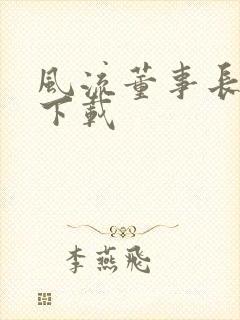 風流董事長
下載
李燕飛